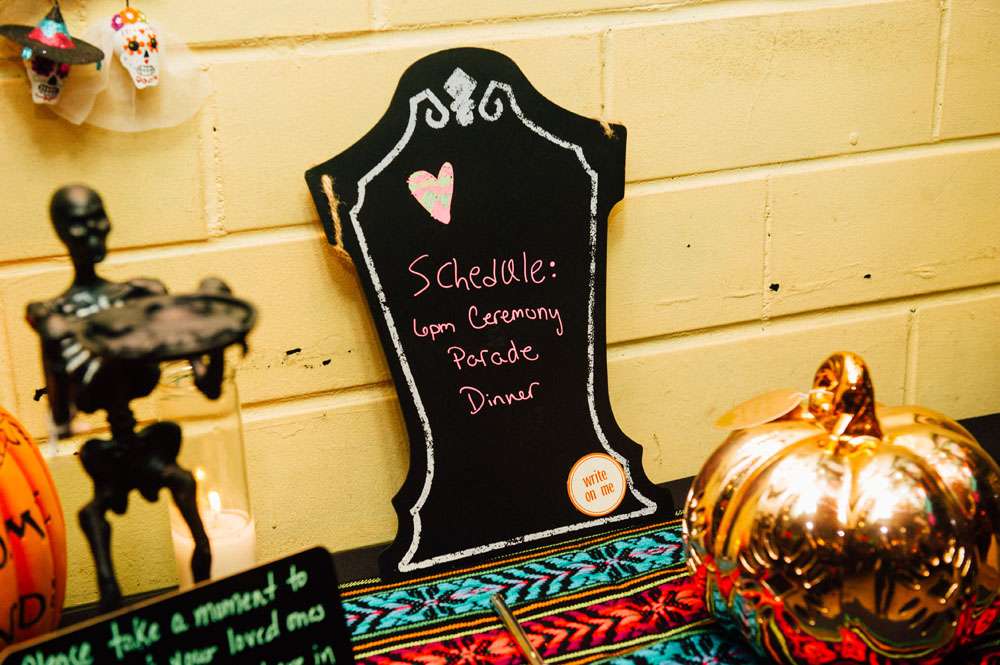 Schedule:
6pm Ceremony
Parade
Dinner
write
on me
Please take a mument to
your loved ones
in